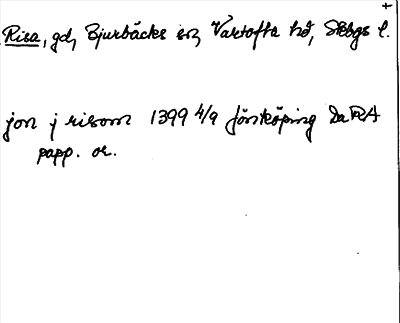 +
Risa, gd, Bjurbäcks sn, Vartofta hd, Skbgs l.
jon j risom 1399 4/9 Jönköping DaRA
papp. or.